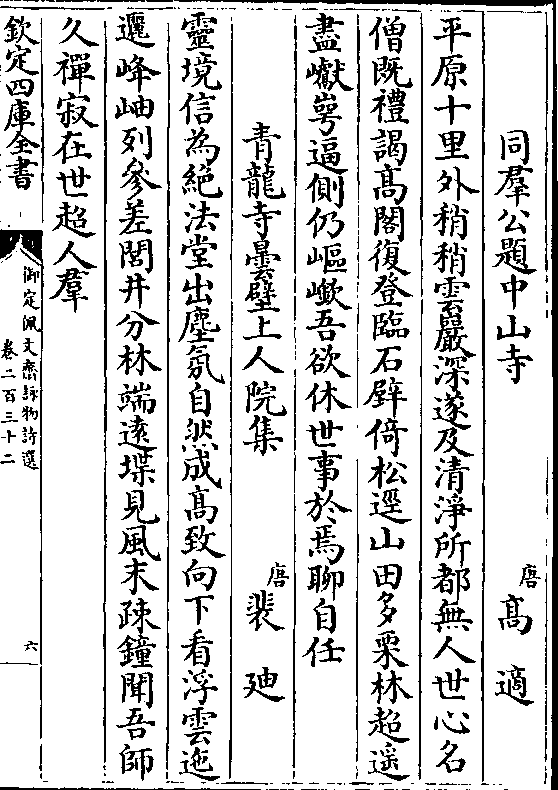 同羣公題中山寺　唐　髙適
平原十里外稍稍雲巖深遂及清淨所都無人世心名
僧既禮謁髙閣復登臨石壁倚松逕山田多栗林超遥
盡巘崿逼側仍嶇嶔吾欲休世事於焉聊自任
青龍寺曇壁上人院集　唐　裴廸
靈境信為絶法堂出塵氛自然成髙致向下看浮雲迤
邐峰岫列參差閭井分林端逺堞見風末疎鐘聞吾師
久禪寂在世超人羣
欽定四庫全書
御定佩文齋詠物詩選
卷二百三十二
六